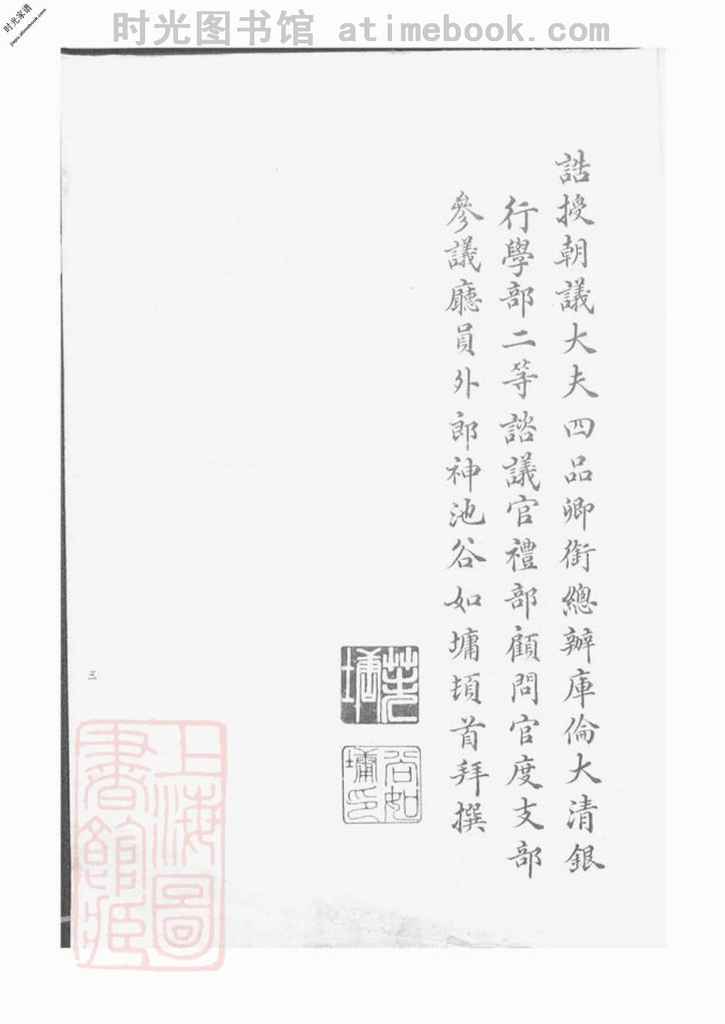 时光图书馆 atimebook.com
时光家谱
誥授朝議大夫四品卿銜總辦庫倫大清銀
行學部二等諮議官禮部顧問官度支部
參議廳員外郎神池谷如墉頓首拜撰
谷如墉印
三
上海圖書館藏